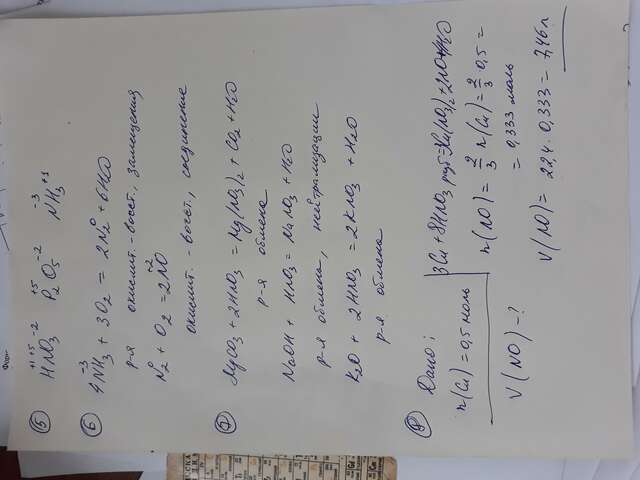 5) H⁺¹N⁺⁵O₃⁻² P₂⁺⁵O₅⁻² N⁻³H₃⁺¹
6) 4N⁻³H₃ + 3O₂ = 2N₂⁰ + 6H₂O
р-я окислит.-восст., замещения
N₂⁰ + O₂ = 2N⁺²O
окислит.-восст., соединение
7) MgCO₃ + 2HNO₃ = Mg(NO₃)₂ + CO₂ + H₂O
р-я обмена
NaOH + HNO₃ = NaNO₃ + H₂O
р-я обмена, нейтрализации
K₂O + 2HNO₃ = 2KNO₃ + H₂O
р-я обмена
8) Дано:
n(Cu) = 0,5 моль
V(NO) - ?
3Cu + 8HNO₃ разб = 3Cu(NO₃)₂ + 2NO + 4H₂O
n(NO) = 2/3 n(Cu) = 2/3 · 0,5 =
= 0,333 моль
V(NO) = 22,4 · 0,333 = 7,46 л